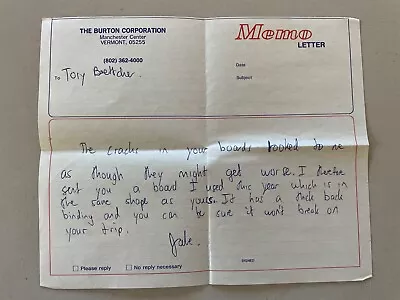 THE BURTON CORPORATION
Manchester Center
VERMONT, 05255
(802) 362-4000
Memo
LETTER
Date
Subject
To Tory Boettcher.
The cracks in your boards looked to me
as though they might get worse. I therefore
sent you a board I used this year which is in
the same shape as yours. It has a thick back
binding and you can be sure it won't break on
your trip.
Jake.
SIGNED
Please reply
No reply necessary